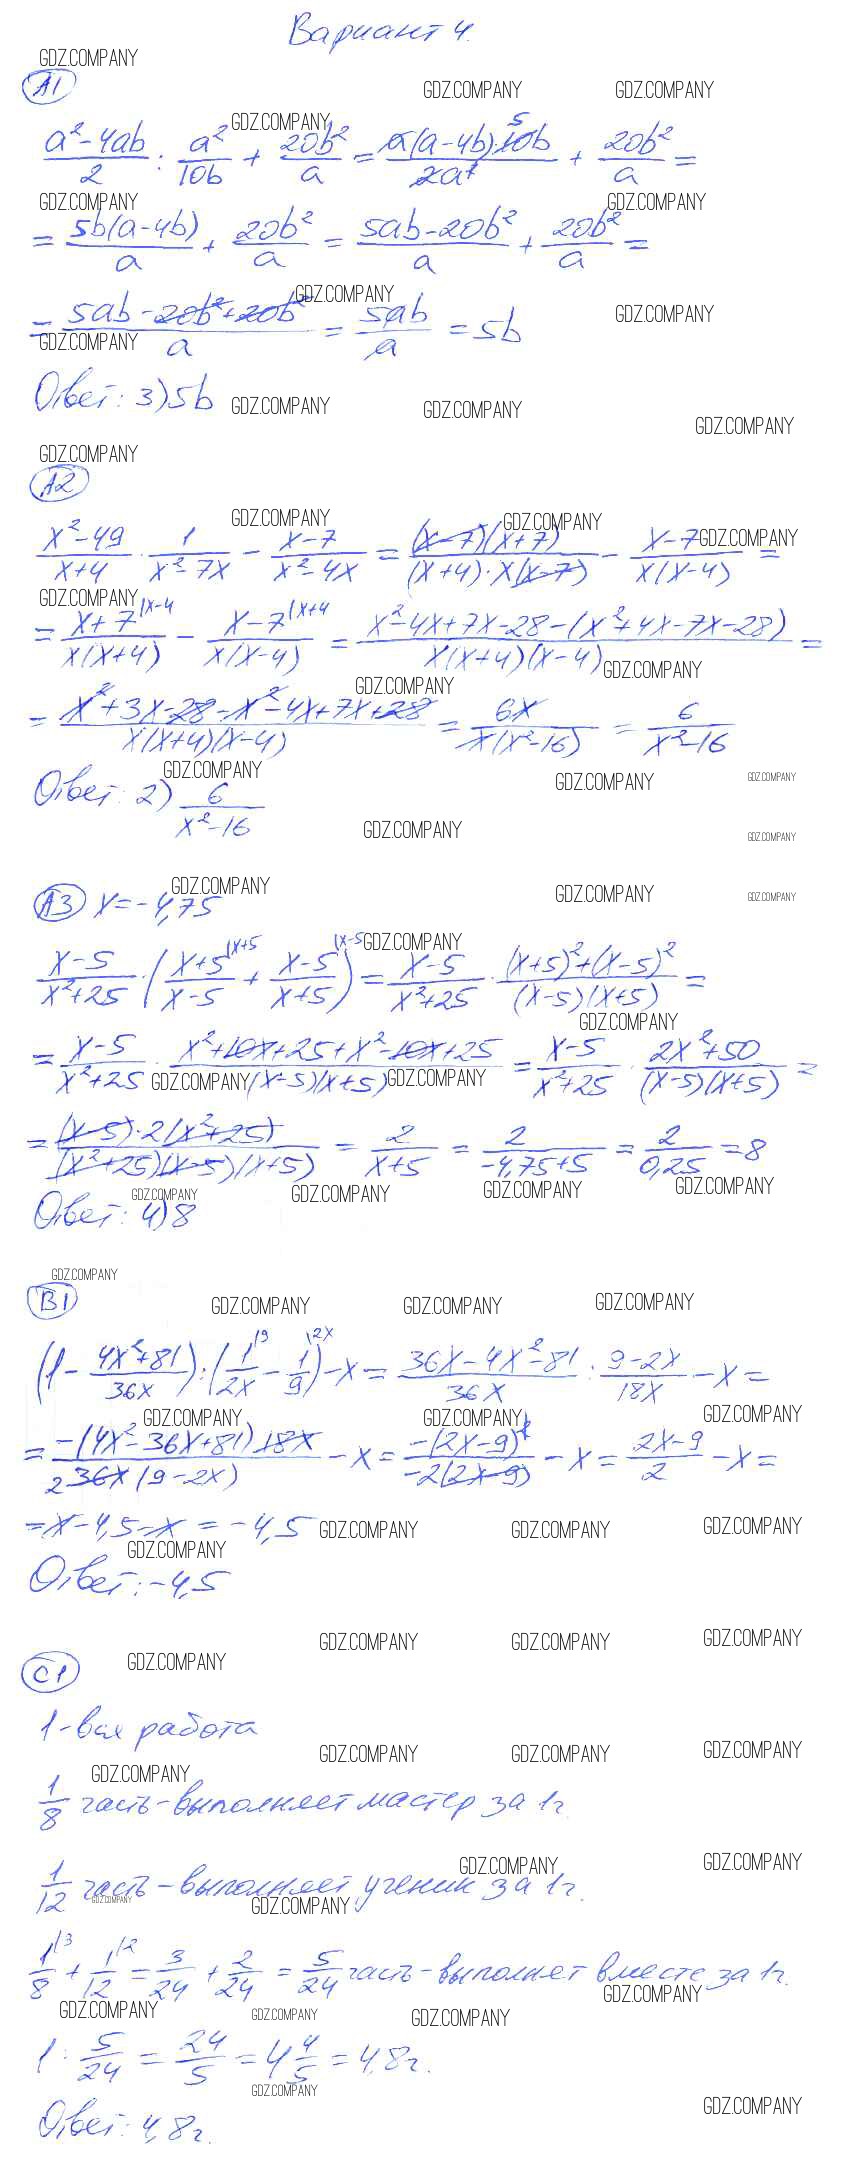 Вариант 4.
А1
(a²-4ab)/2 : a²/(10b) + 20b²/a = (a(a-4b)·10b)/(2a²) 5 + 20b²/a =
= 5b(a-4b)/a + 20b²/a = (5ab-20b²)/a + 20b²/a =
= (5ab-20b²+20b²)/a = 5ab/a = 5b
Ответ: 3) 5b
А2
(x²-49)/(x+4) · 1/(x²-7x) - (x-7)/(x²-4x) = ((x-7)(x+7))/((x+4)·x(x-7)) - (x-7)/(x(x-4)) =
= (x+7)/(x(x+4)) |x-4 - (x-7)/(x(x-4)) |x+4 = (x²-4x+7x-28-(x²+4x-7x-28))/(x(x+4)(x-4)) =
= (x²+3x-28-x²-4x+7x+28)/(x(x+4)(x-4)) = 6x/(x(x²-16)) = 6/(x²-16)
Ответ: 2) 6/(x²-16)
А3 x=-4,75
(x-5)/(x²+25) · ((x+5)/(x-5) |x+5 + (x-5)/(x+5) |x-5) = (x-5)/(x²+25) · ((x+5)²+(x-5)²)/((x-5)(x+5)) =
= (x-5)/(x²+25) · (x²+10x+25+x²-10x+25)/((x-5)(x+5)) = (x-5)/(x²+25) · (2x²+50)/((x-5)(x+5)) =
= ((x-5)·2(x²+25))/((x²+25)(x-5)(x+5)) = 2/(x+5) = 2/(-4,75+5) = 2/0,25 = 8
Ответ: 4) 8
В1
(1 - (4x²+81)/(36x)) : (1/(2x) |9 - 1/9 |2x) - x = (36x-4x²-81)/(36x) : (9-2x)/(18x) - x =
= (-(4x²-36x+81)·18x)/(2 36x(9-2x)) - x = (-(2x-9)²)/(-2(2x-9)) - x = (2x-9)/2 - x =
= x-4,5-x = -4,5
Ответ: -4,5
С1
1-вся работа
1/8 часть-выполняет мастер за 1ч.
1/12 часть-выполняет ученик за 1ч.
1/8 |3 + 1/12 |2 = 3/24 + 2/24 = 5/24 часть-выполнят вместе за 1ч.
1 : 5/24 = 24/5 = 4 4/5 = 4,8ч.
Ответ: 4,8ч.
GDZ.COMPANY